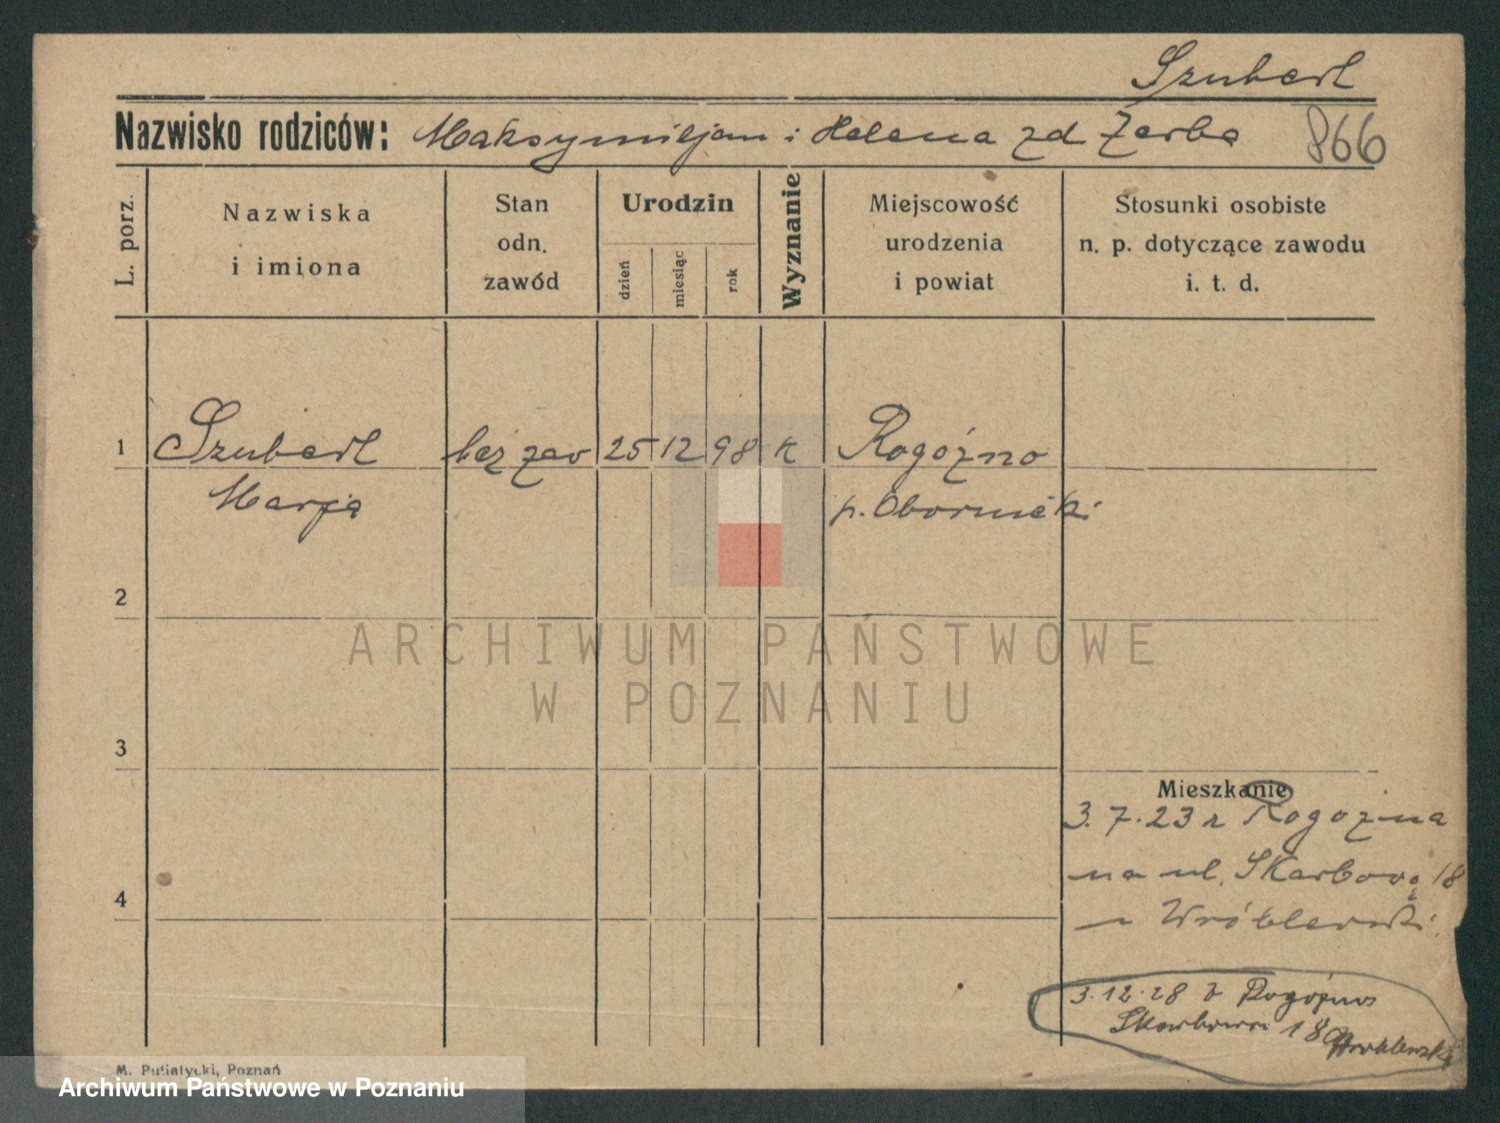 Szubert
Nazwisko rodziców: Maksymiljan i Helena zd Zerbe
866
L. porz.
Nazwiska
i imiona
Stan
odn.
zawód
Urodzin
dzień
miesiąc
rok
Wyznanie
Miejscowość
urodzenia
i powiat
Stosunki osobiste
n. p. dotyczące zawodu
i. t. d.
1 Szubert bez zaw 25 12 98 k Rogoźno
Marja p. Oborniki
2
3
4
Mieszkanie
3. 7. 23 z Rogoźna
na ul. Skarbową 18
u Wróblewski
3. 12. 28 Rogoźno
Skarbowa 18
M. Putiatycki, Poznań
ARCHIWUM PAŃSTWOWE
W POZNANIU
Archiwum Państwowe w Poznaniu